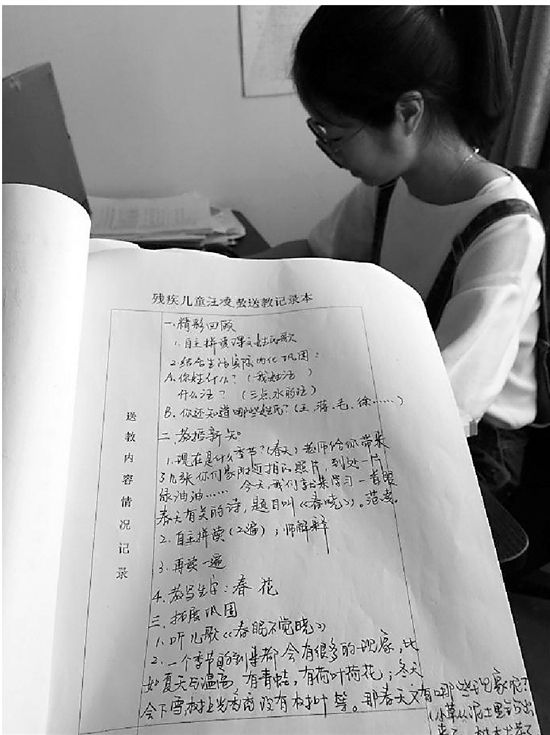 残疾儿童汪凌燕送教记录本
送教内容情况记录
一、精彩回顾
1.自主拼读课文姓氏歌
2.结合生活实际内化巩固：
A.你姓什么？（我姓汪）
什么汪？（三点水的汪）
B.你还知道哪些姓氏？(王、蒋、毛、徐……)
二、教授新知
1.现在是什么季节？(春天) 老师给你带来
了几张你们家附近拍的照片，到处一片
绿油油…… 今天，我们就来学习一首跟
春天有关的诗，题目叫《春晓》。范读。
2.自主拼读（2遍）；师解释
3.再读一遍
4.教写生字：春 花
三、拓展巩固
1.听儿歌《春眠不觉晓》
2.一个季节的到来都会有很多的现象，比
如夏天气温高，有青蛙，有荷叶荷花；冬天
会下雪，树上光秃秃没有树叶等。那春天又有哪些现象呢？
(小草从泥土里钻出
来了，树木发芽了